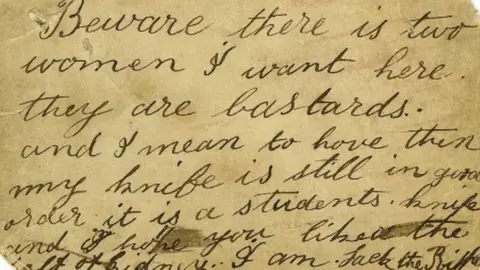 Beware there is two
women I want here.
they are bastards.
and I mean to hove them
my knife is still in good
order it is a students knife
and I hope you liked the
half of kidney. I am Jack the Ripper